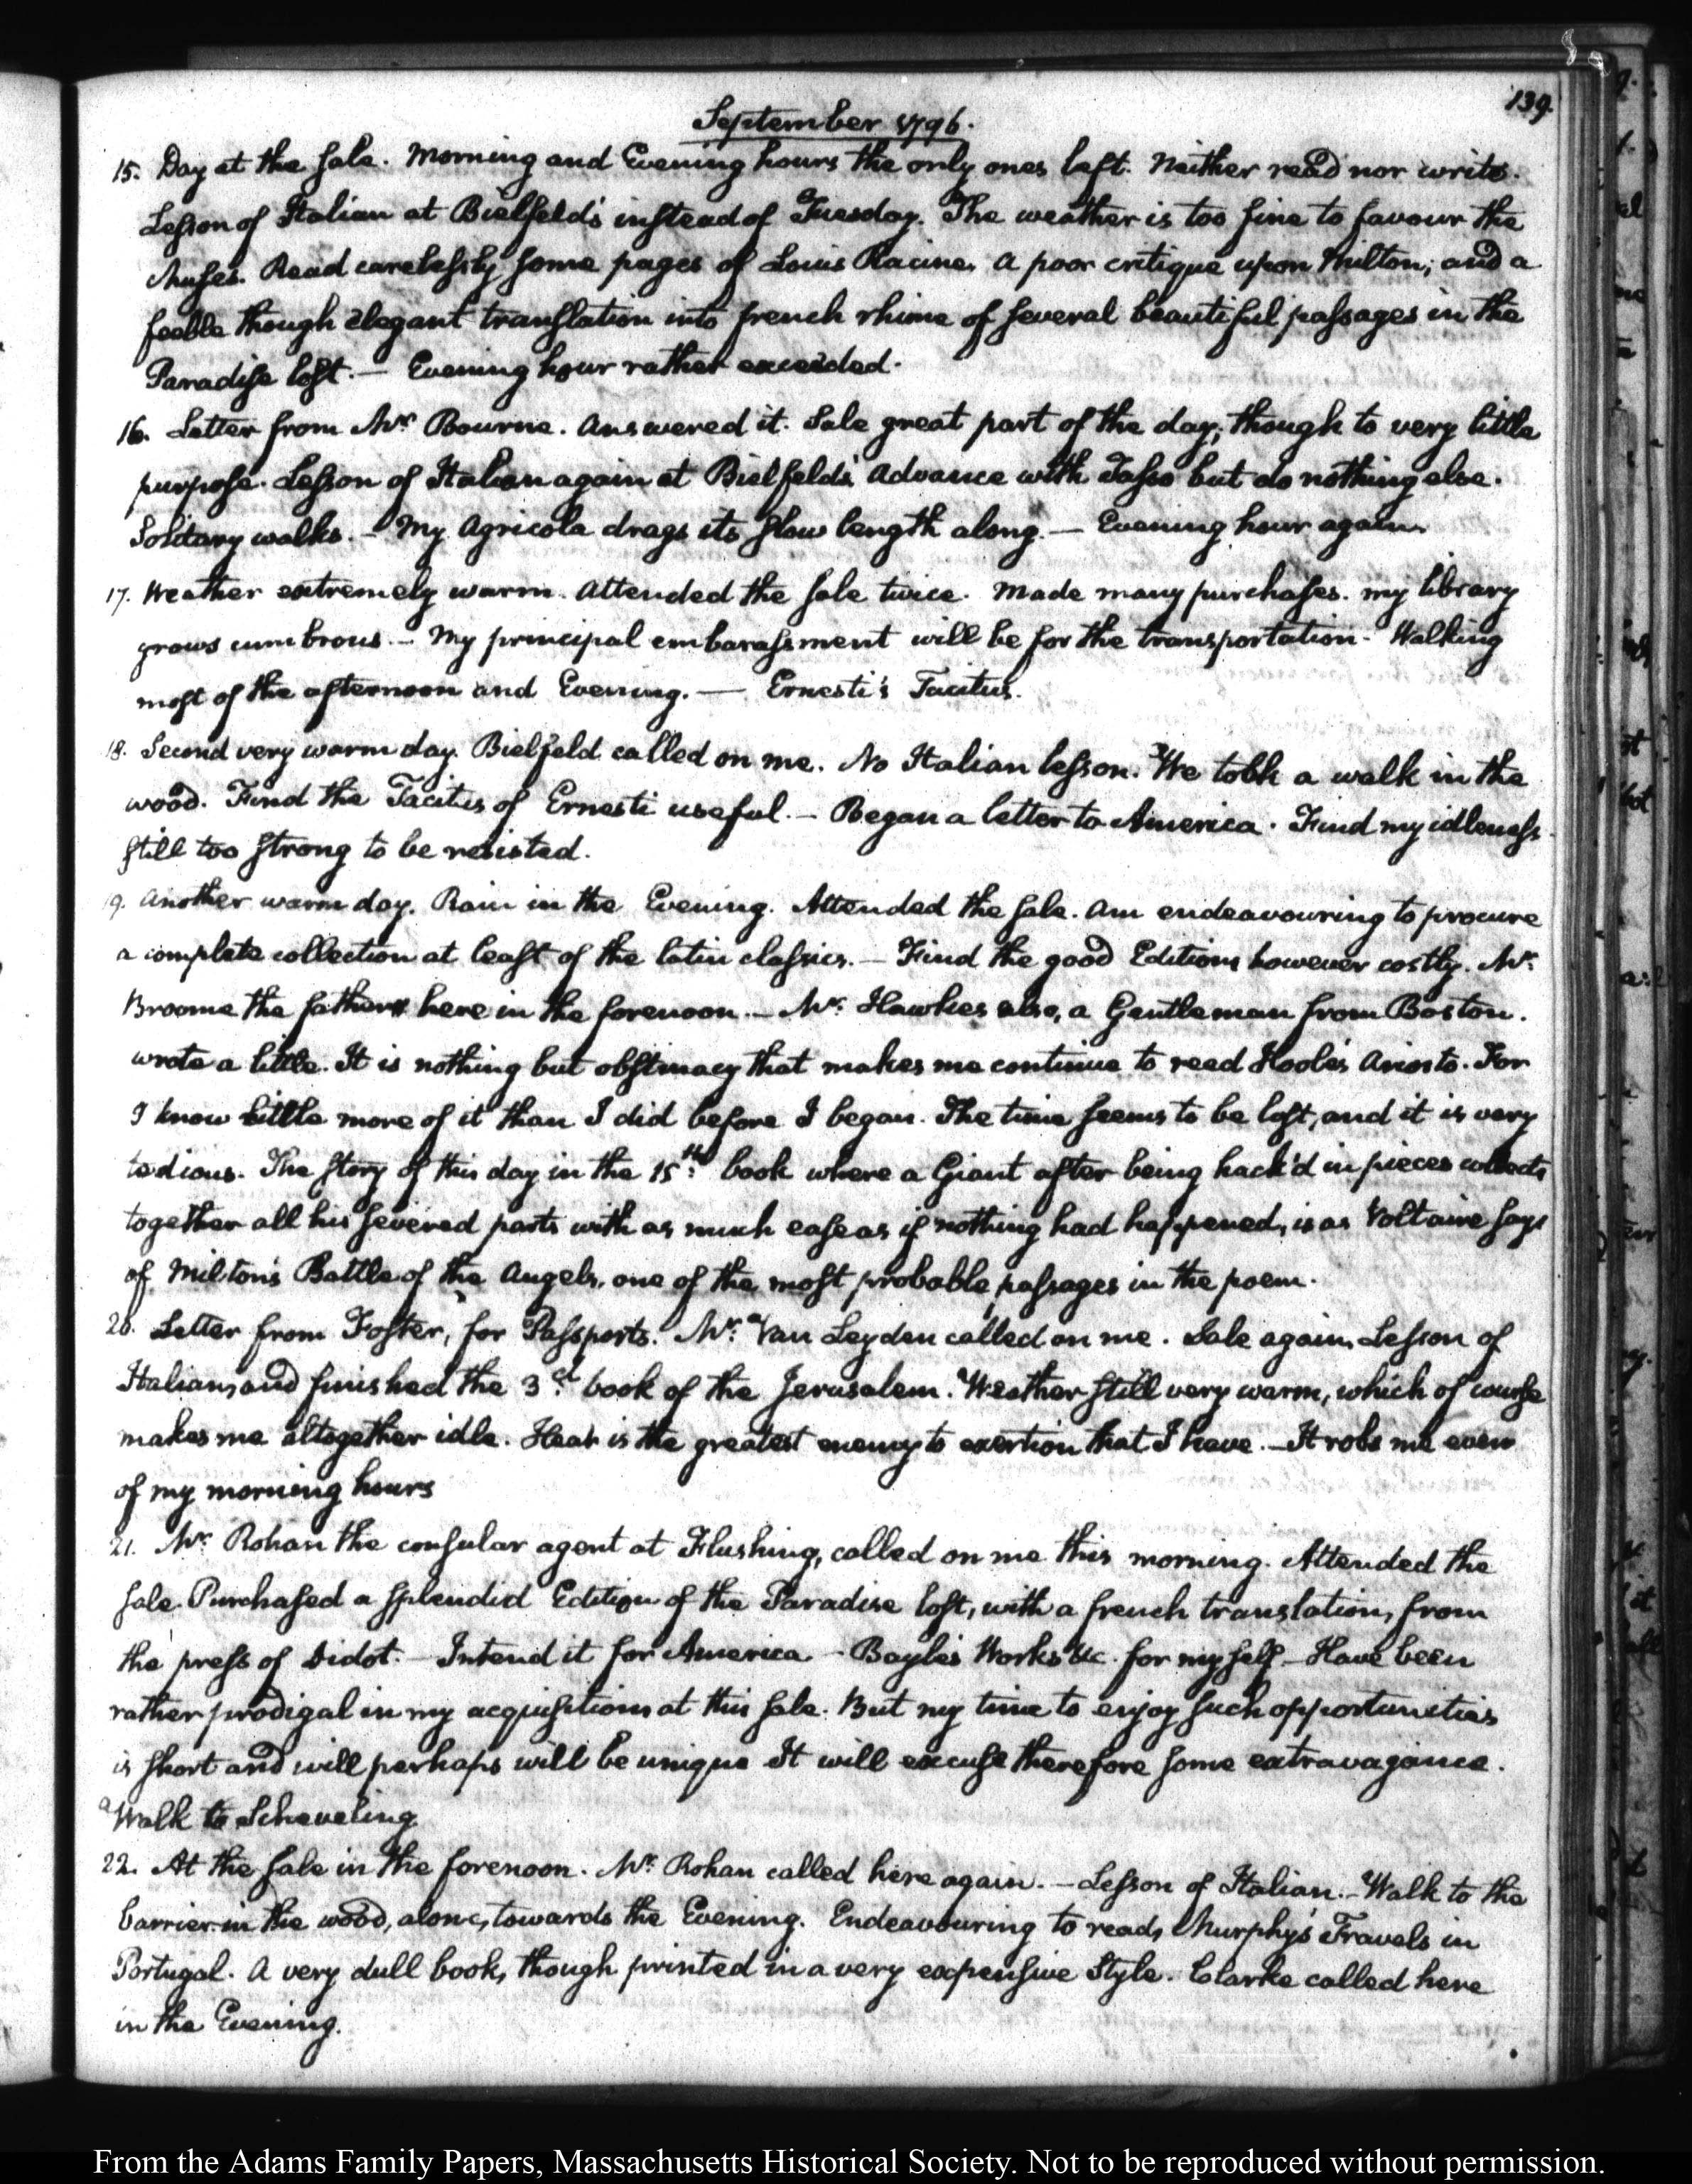 139.
September 1796.
15. Day at the sale. Morning and Evening hours the only ones left. Neither read nor write.
Lesson of Italian at Bielfeld's instead of Tuesday. The weather is too fine to favour the
Muses. Read carelessly some pages of Louis Racine. A poor critique upon Milton; and a
feeble though elegant translation into french rhime of several beautiful passages in the
Paradise lost. — Evening hour rather exceeded.
16. Letter from Mr. Bourne. Answered it. Sale great part of the day; though to very little
purpose. Lesson of Italian again at Bielfeld's. Advance with Tasso but do nothing else.
Solitary walks. — My Agricola drags its slow length along. — Evening hour again.
17. Weather extremely warm. Attended the sale twice. Made many purchases. My library
grows cumbrous. — My principal embarassment will be for the transportation. Walking
most of the afternoon and Evening. — Ernesti's Tacitus.
18. Second very warm day. Bielfeld called on me. No Italian lesson. We took a walk in the
wood. Find the Tacitus of Ernesti useful. — Began a letter to America. Find my idleness
still too strong to be resisted.
19. Another warm day. Rain in the Evening. Attended the sale. Am endeavouring to procure
a complete collection at least of the latin classics. — Find the good Editions however costly. Mr.
Broome the father here in the forenoon. — Mr. Hawkes also, a Gentleman from Boston.
wrote a little. It is nothing but obstinacy that makes me continue to read Hoole's Ariosto. For
I know little more of it than I did before I began. The time seems to be lost, and it is very
tedious. The story of this day in the 15th. book where a Giant after being hack'd in pieces collects
together all his severed parts with as much ease as if nothing had happened, is as Voltaire says
of Milton's Battle of the Angels, one of the most probable passages in the poem.
20. Letter from Foster, for Passports. Mr. Van Leyden called on me. Sale again. Lesson of
Italian, and finished the 3d. book of the Jerusalem. Weather still very warm, which of course
makes me altogether idle. Heat is the greatest enemy to exertion that I have. — It robs me even
of my morning hours
21. Mr. Rohan the consular agent at Flushing, called on me this morning. Attended the
sale. Purchased a splendid Edition of the Paradise lost, with a french translation, from
the press of Didot. — Intend it for America — Bayle's Works &c. for myself — Have been
rather prodigal in my acquisitions at this sale. But my time to enjoy such opportunities
is short and will perhaps will be unique It will excuse therefore some extravagance.
Walk to Scheveling.
22. At the sale in the forenoon. Mr. Rohan called here again. — Lesson of Italian. — Walk to the
barrier in the wood, alone, towards the Evening. Endeavouring to read, Murphy's Travels in
Portugal. A very dull book, though printed in a very expensive Style. Clarke called here
in the Evening.
From the Adams Family Papers, Massachusetts Historical Society. Not to be reproduced without permission.